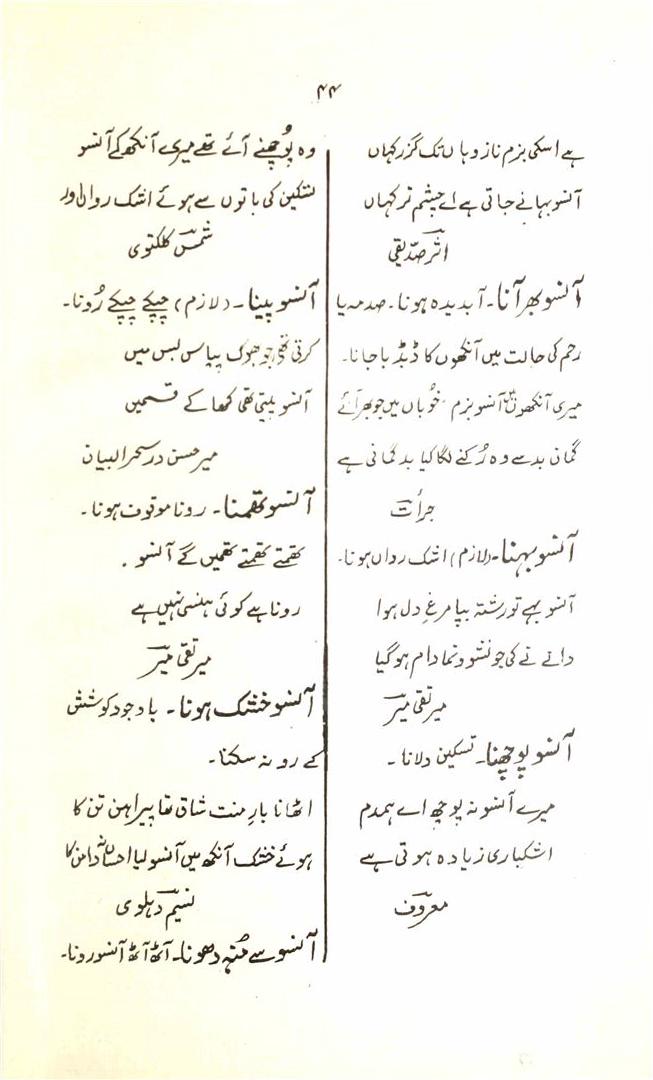 ۴۴
ہے اسکی بزم ناز وہاں تک گزر کہاں
آنسو بہانے جاتی ہے اے چشم تر کہاں
اثر صدیقی
آنسو بھر آنا۔ آبدیدہ ہونا۔ صدمہ یا
رحم کی حالت میں آنکھوں کا ڈبڈبا جانا۔
میری آنکھوں میں آنسو بزم خوباں میں جو بھر آئے
گمان بد سے وہ رُکنے لگا کیا بدگمانی ہے
جرأت
آنسو بہنا۔ (لازم) اشک رواں ہونا۔
آنسو بہے تو رشتہ بپا مرغِ دل ہوا
دانے نے کی جو نشو و نما دام ہوگیا
میر تقی میر
آنسو پوچھنا۔ تسکین دلانا۔
میرے آنسو نہ پوچھ اے ہمدم
اشکباری زیادہ ہوتی ہے
معروف
وہ پُوچھنے آئے تھے میری آنکھ کے آنسو
تسکین کی باتوں سے ہوئے اشک رواں اور
شمس کلکتوی
آنسو پینا۔ (لازم) چپکے چپکے رُونا۔
کرتی تھی جو بھوک پیاس بس میں
آنسو پیتی تھی کھا کے قسمیں
میر حسن در سحر البیان
آنسو تھمنا۔ رونا موقوف ہونا۔
تھمتے تھمتے تھمیں گے آنسو۔
رونا ہے کوئی ہنسی نہیں ہے
میر تقی میر
آنسو خشک ہونا۔ باوجود کوشش
کے رو نہ سکنا۔
اٹھانا بارِ منت شاق تھا پیراہن تن کا
ہوئے خشک آنکھ میں آنسو لیا احساں نہ دامن کا
نسیم دہلوی
آنسو سے مُنہ دھونا۔ آٹھ آٹھ آنسو رونا۔